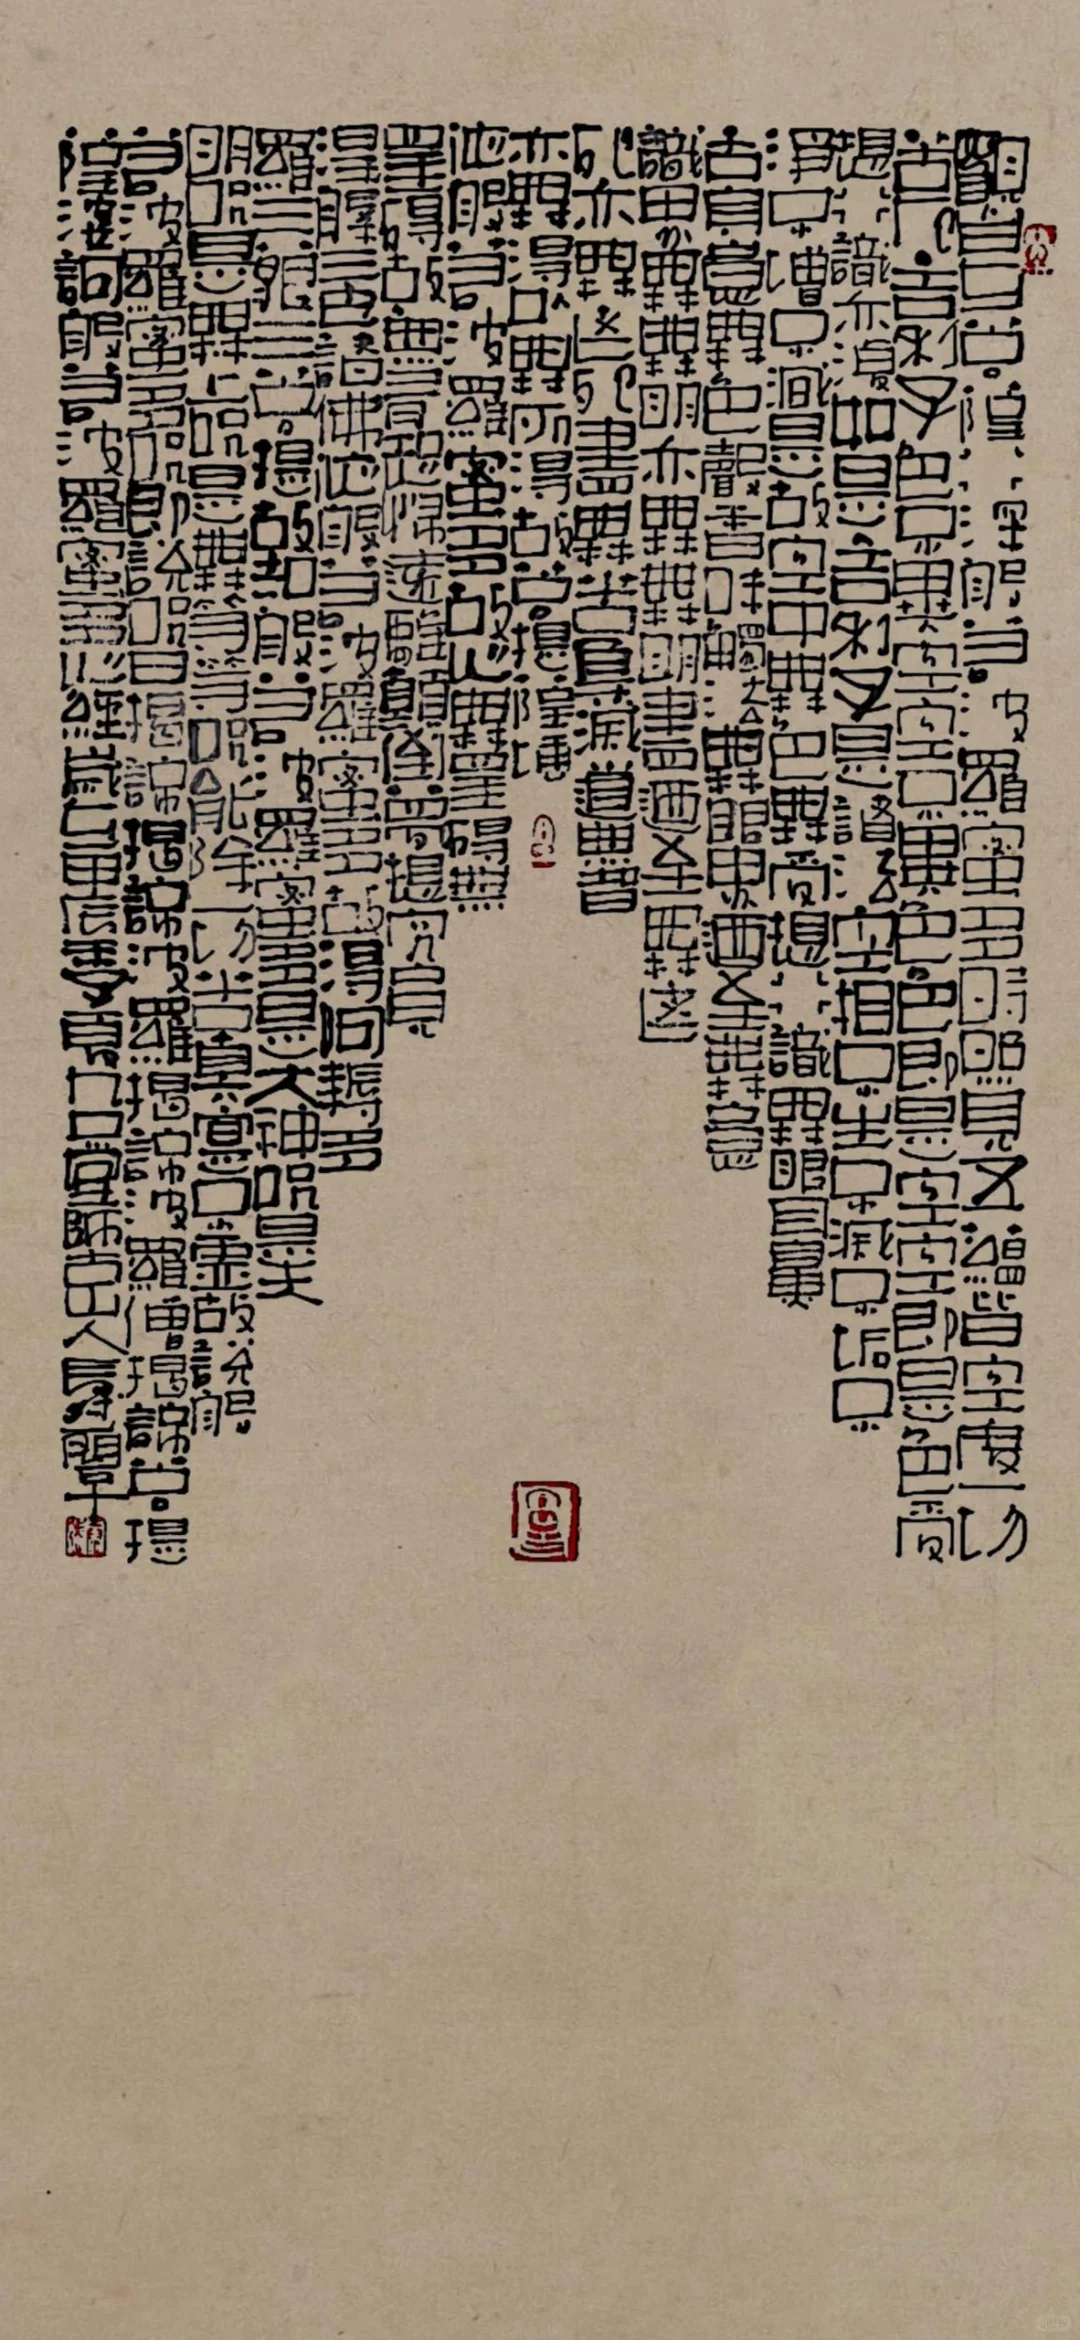 觀自在菩薩行深般若波羅蜜多時照見五蘊皆空度一切
苦厄舍利子色不異空空不異色色即是空空即是色受
想行識亦復如是舍利子是諸法空相不生不滅不垢不
淨不增不減是故空中無色無受想行識無眼耳鼻
舌身意無色聲香味觸法無眼界迺至無意
識界無無明亦無無明盡迺至無老
死亦無老死盡無苦集滅道無智
亦無得以無所得故菩提薩埵
依般若波羅蜜多故心無罣礙無
罣礙故無有恐怖遠離顛倒夢想究竟
涅槃三世諸佛依般若波羅蜜多故得阿耨多
羅三藐三菩提故知般若波羅蜜多是大神咒是大
明咒是無上咒是無等等咒能除一切苦真實不虛故說般
若波羅蜜多咒即說咒曰揭諦揭諦波羅揭諦波羅僧揭諦菩提
薩婆訶般若波羅蜜多心經歲